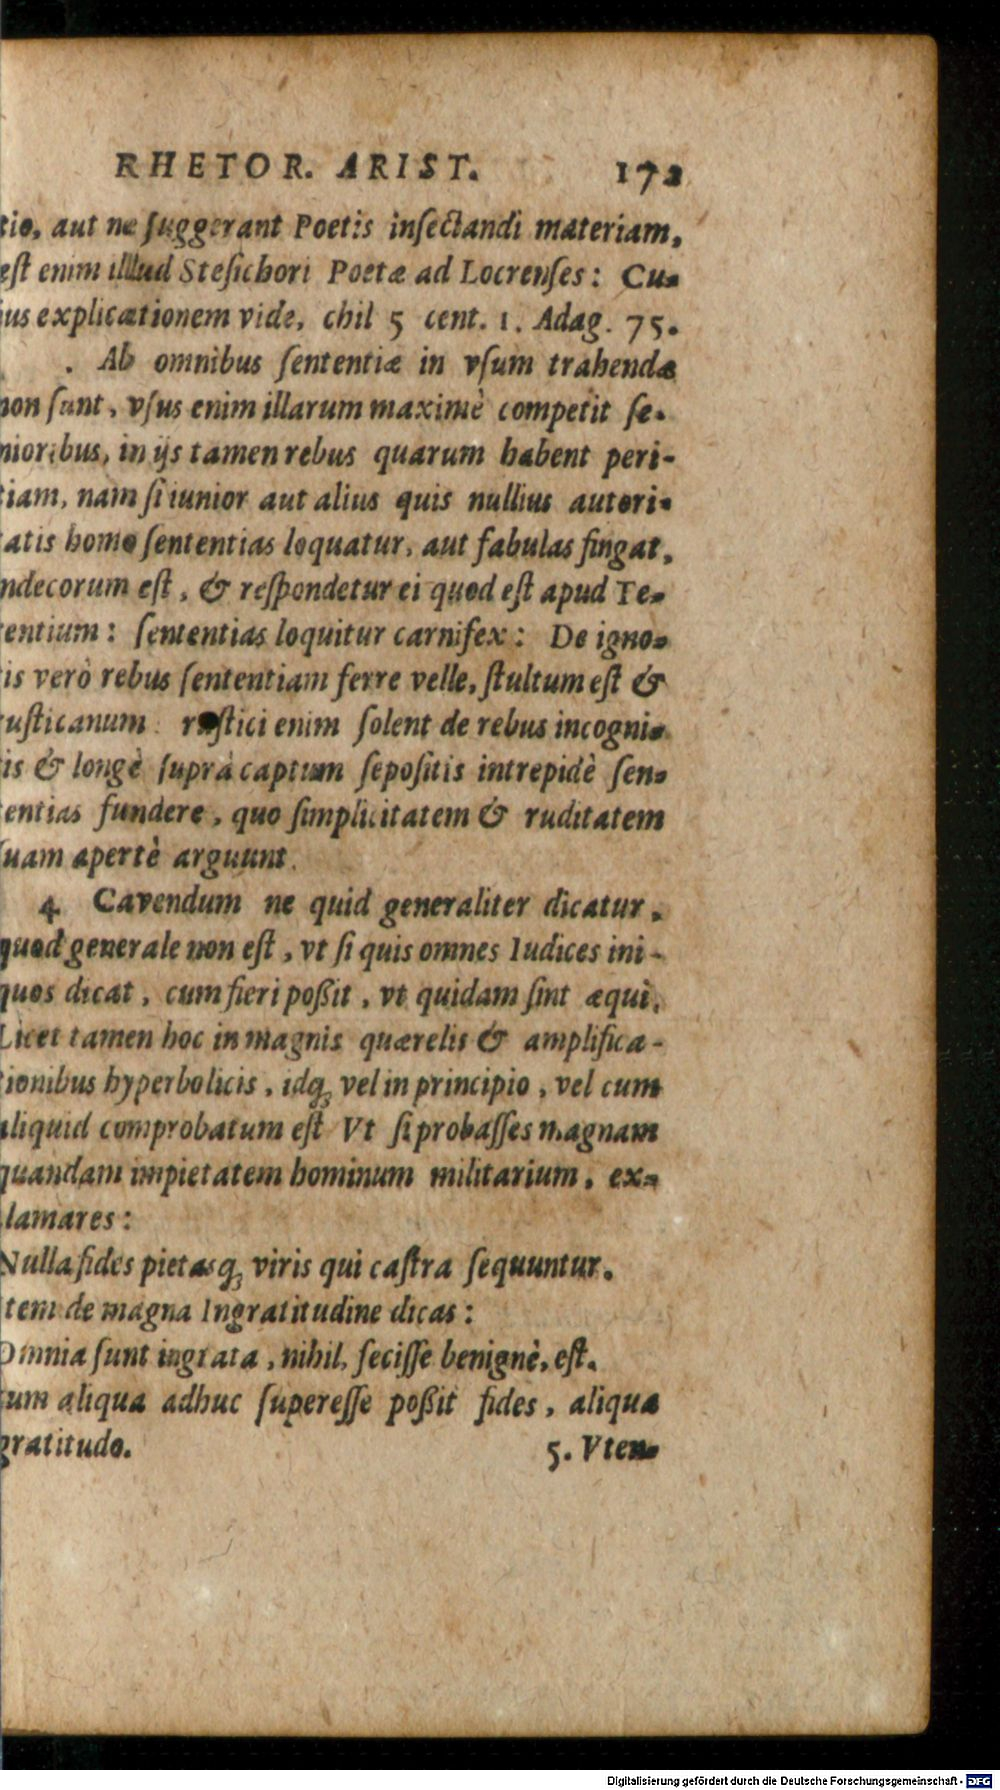 RHETOR. ARIST. 172
tio, aut ne suggerant Poetis insectandi materiam,
est enim illud Stesichori Poetæ ad Locrenses: Cu-
ius explicationem vide, chil 5 cent. 1. Adag. 75.
. Ab omnibus sententiæ in vsum trahendæ
non sunt, vsus enim illarum maximè competit se-
nioribus, in ijs tamen rebus quarum habent peri-
tiam, nam si iunior aut alius quis nullius autori-
tatis homo sententias loquatur, aut fabulas fingat,
ndecorum est, & respondetur ei quod est apud Te-
rentium: sententias loquitur carnifex: De igno-
tis verò rebus sententiam ferre velle, stultum est &
rusticanum. rustici enim solent de rebus incogni-
tis & longè suprà captum sepositis intrepidè sen-
tentias fundere, quo simplicitatem & ruditatem
suam apertè arguunt.
4 Cavendum ne quid generaliter dicatur,
quod generale non est, vt si quis omnes Iudices ini-
quos dicat, cum fieri poßit, vt quidam sint æqui,
Licet tamen hoc in magnis quærelis & amplifica-
tionibus hyperbolicis, idq; vel in principio, vel cum
aliquid comprobatum est Vt si probasses magnam
quandam impietatem hominum militarium, ex-
clamares:
Nulla fides pietasq; viris qui castra sequuntur.
Item de magna Ingratitudine dicas:
Omnia sunt ingrata, nihil, fecisse benignè, est.
cum aliqua adhuc superesse poßit fides, aliqua
gratitudo. 5. Vten-
Digitalisierung gefördert durch die Deutsche Forschungsgemeinschaft - DFG